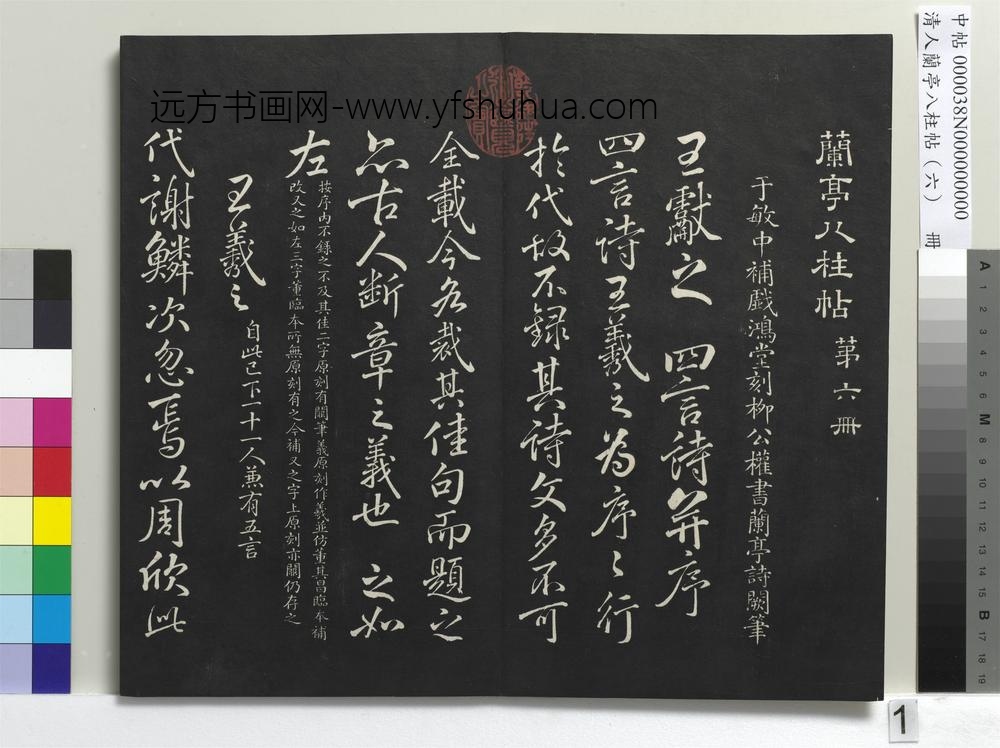 蘭亭八柱帖 第六冊
于敏中補戲鴻堂刻柳公權書蘭亭詩闕筆
王獻之 四言詩并序
四言詩王羲之為序〻行
於代故不錄其詩文多不可
全載今各裁其佳句而題之
亦古人斷章之義也 之如
左
按序內不錄之不及其佳二字原刻有闕筆義原刻作羲並仿董其昌臨本補
改又之如左三字董臨本所無原刻有之今補又之字上原刻亦闕仍存之
王羲之 自此已下一十一人兼有五言
代謝鱗次忽焉以周欣此
远方书画网-www.yfshuhua.com
中帖 000038N000000000
清人蘭亭八柱帖(六) 冊
A 1 2 3 4 5 6 M 8 9 10 11 12 13 14 15 B 17 18 19
1